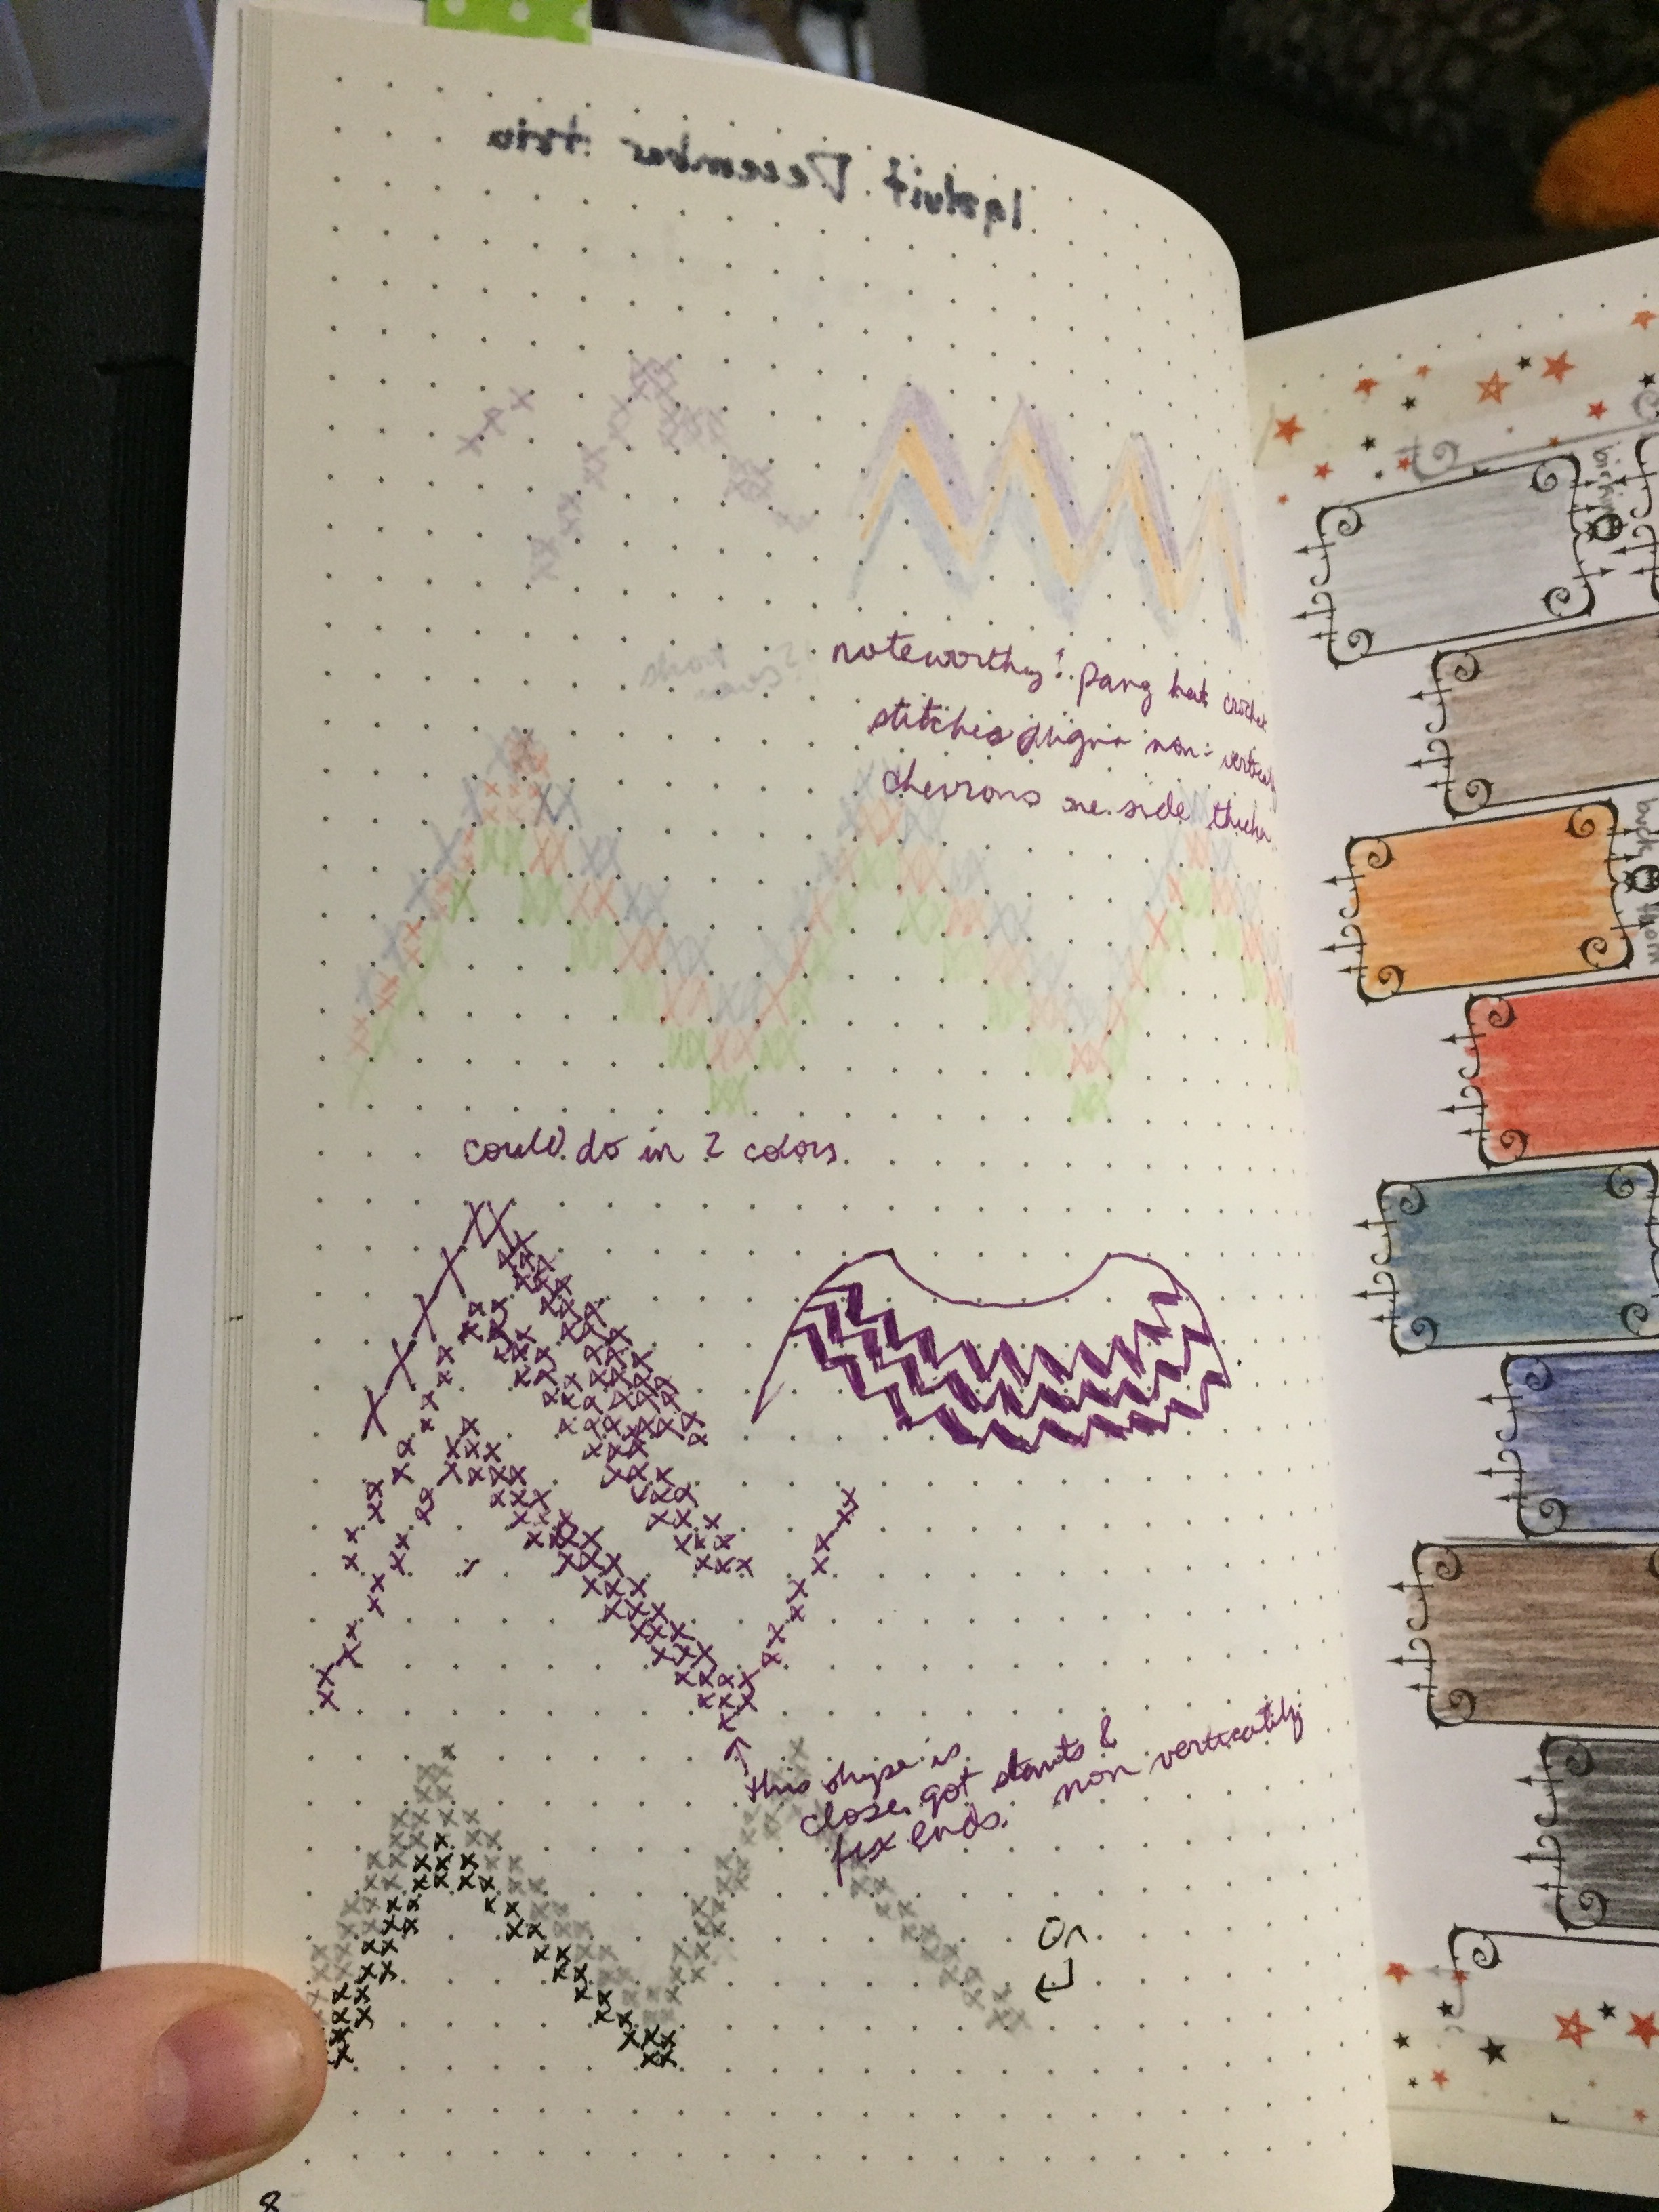 noteworthy: crochet
stitches align non-vertically
chevrons one side
could do in 2 colors.
this shape is
close, got starts &
fix ends. non vertically
or
8